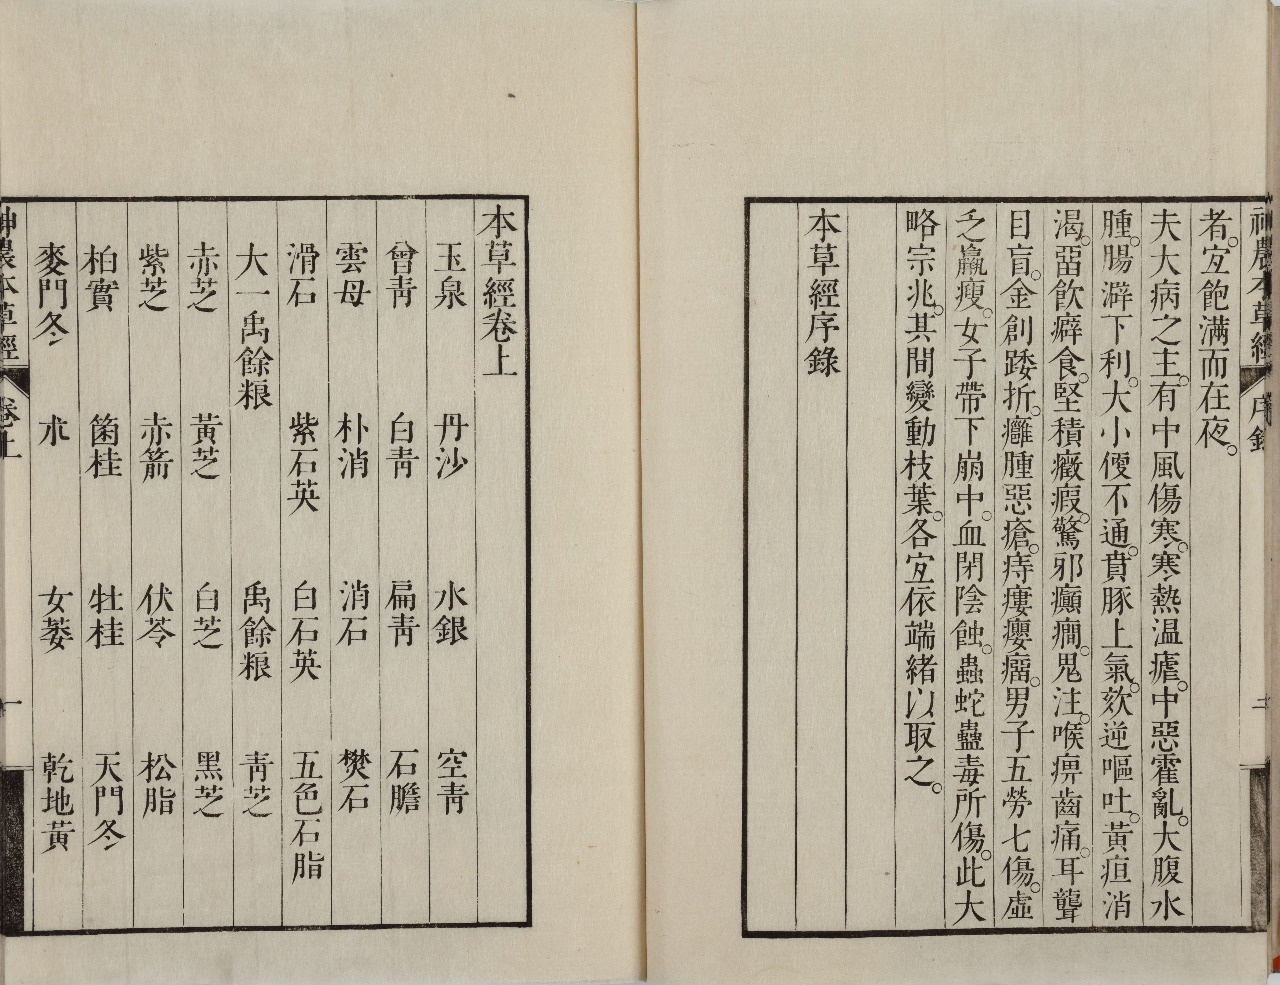 神農本草經 序錄 二
者。宜飽滿而在夜。
夫大病之主。有中風傷寒。寒熱温瘧。中惡霍亂。大腹水
腫。腸澼下利。大小便不通。賁豚上氣。欬逆嘔吐。黃疸消
渴。畱飲癖食。堅積癥瘕。驚邪癲癇。鬼注。喉痹齒痛。耳聾
目盲。金創踒折。癰腫惡瘡。痔瘻癭瘤。男子五勞七傷。虛
乏羸瘦。女子帶下崩中。血閉陰蝕。蟲蛇蠱毒所傷。此大
略宗兆。其間變動枝葉。各宜依端緒以取之。
本草經序錄
本草經卷上
玉泉 丹沙 水銀 空靑
曾靑 白靑 扁靑 石膽
雲母 朴消 消石 樊石
滑石 紫石英 白石英 五色石脂
大一禹餘粮 禹餘粮 靑芝
赤芝 黃芝 白芝 黑芝
紫芝 赤箭 伏苓 松脂
柏實 箘桂 牡桂 天門冬
麥門冬 朮 女萎 乾地黃
神農本草經 卷上 一